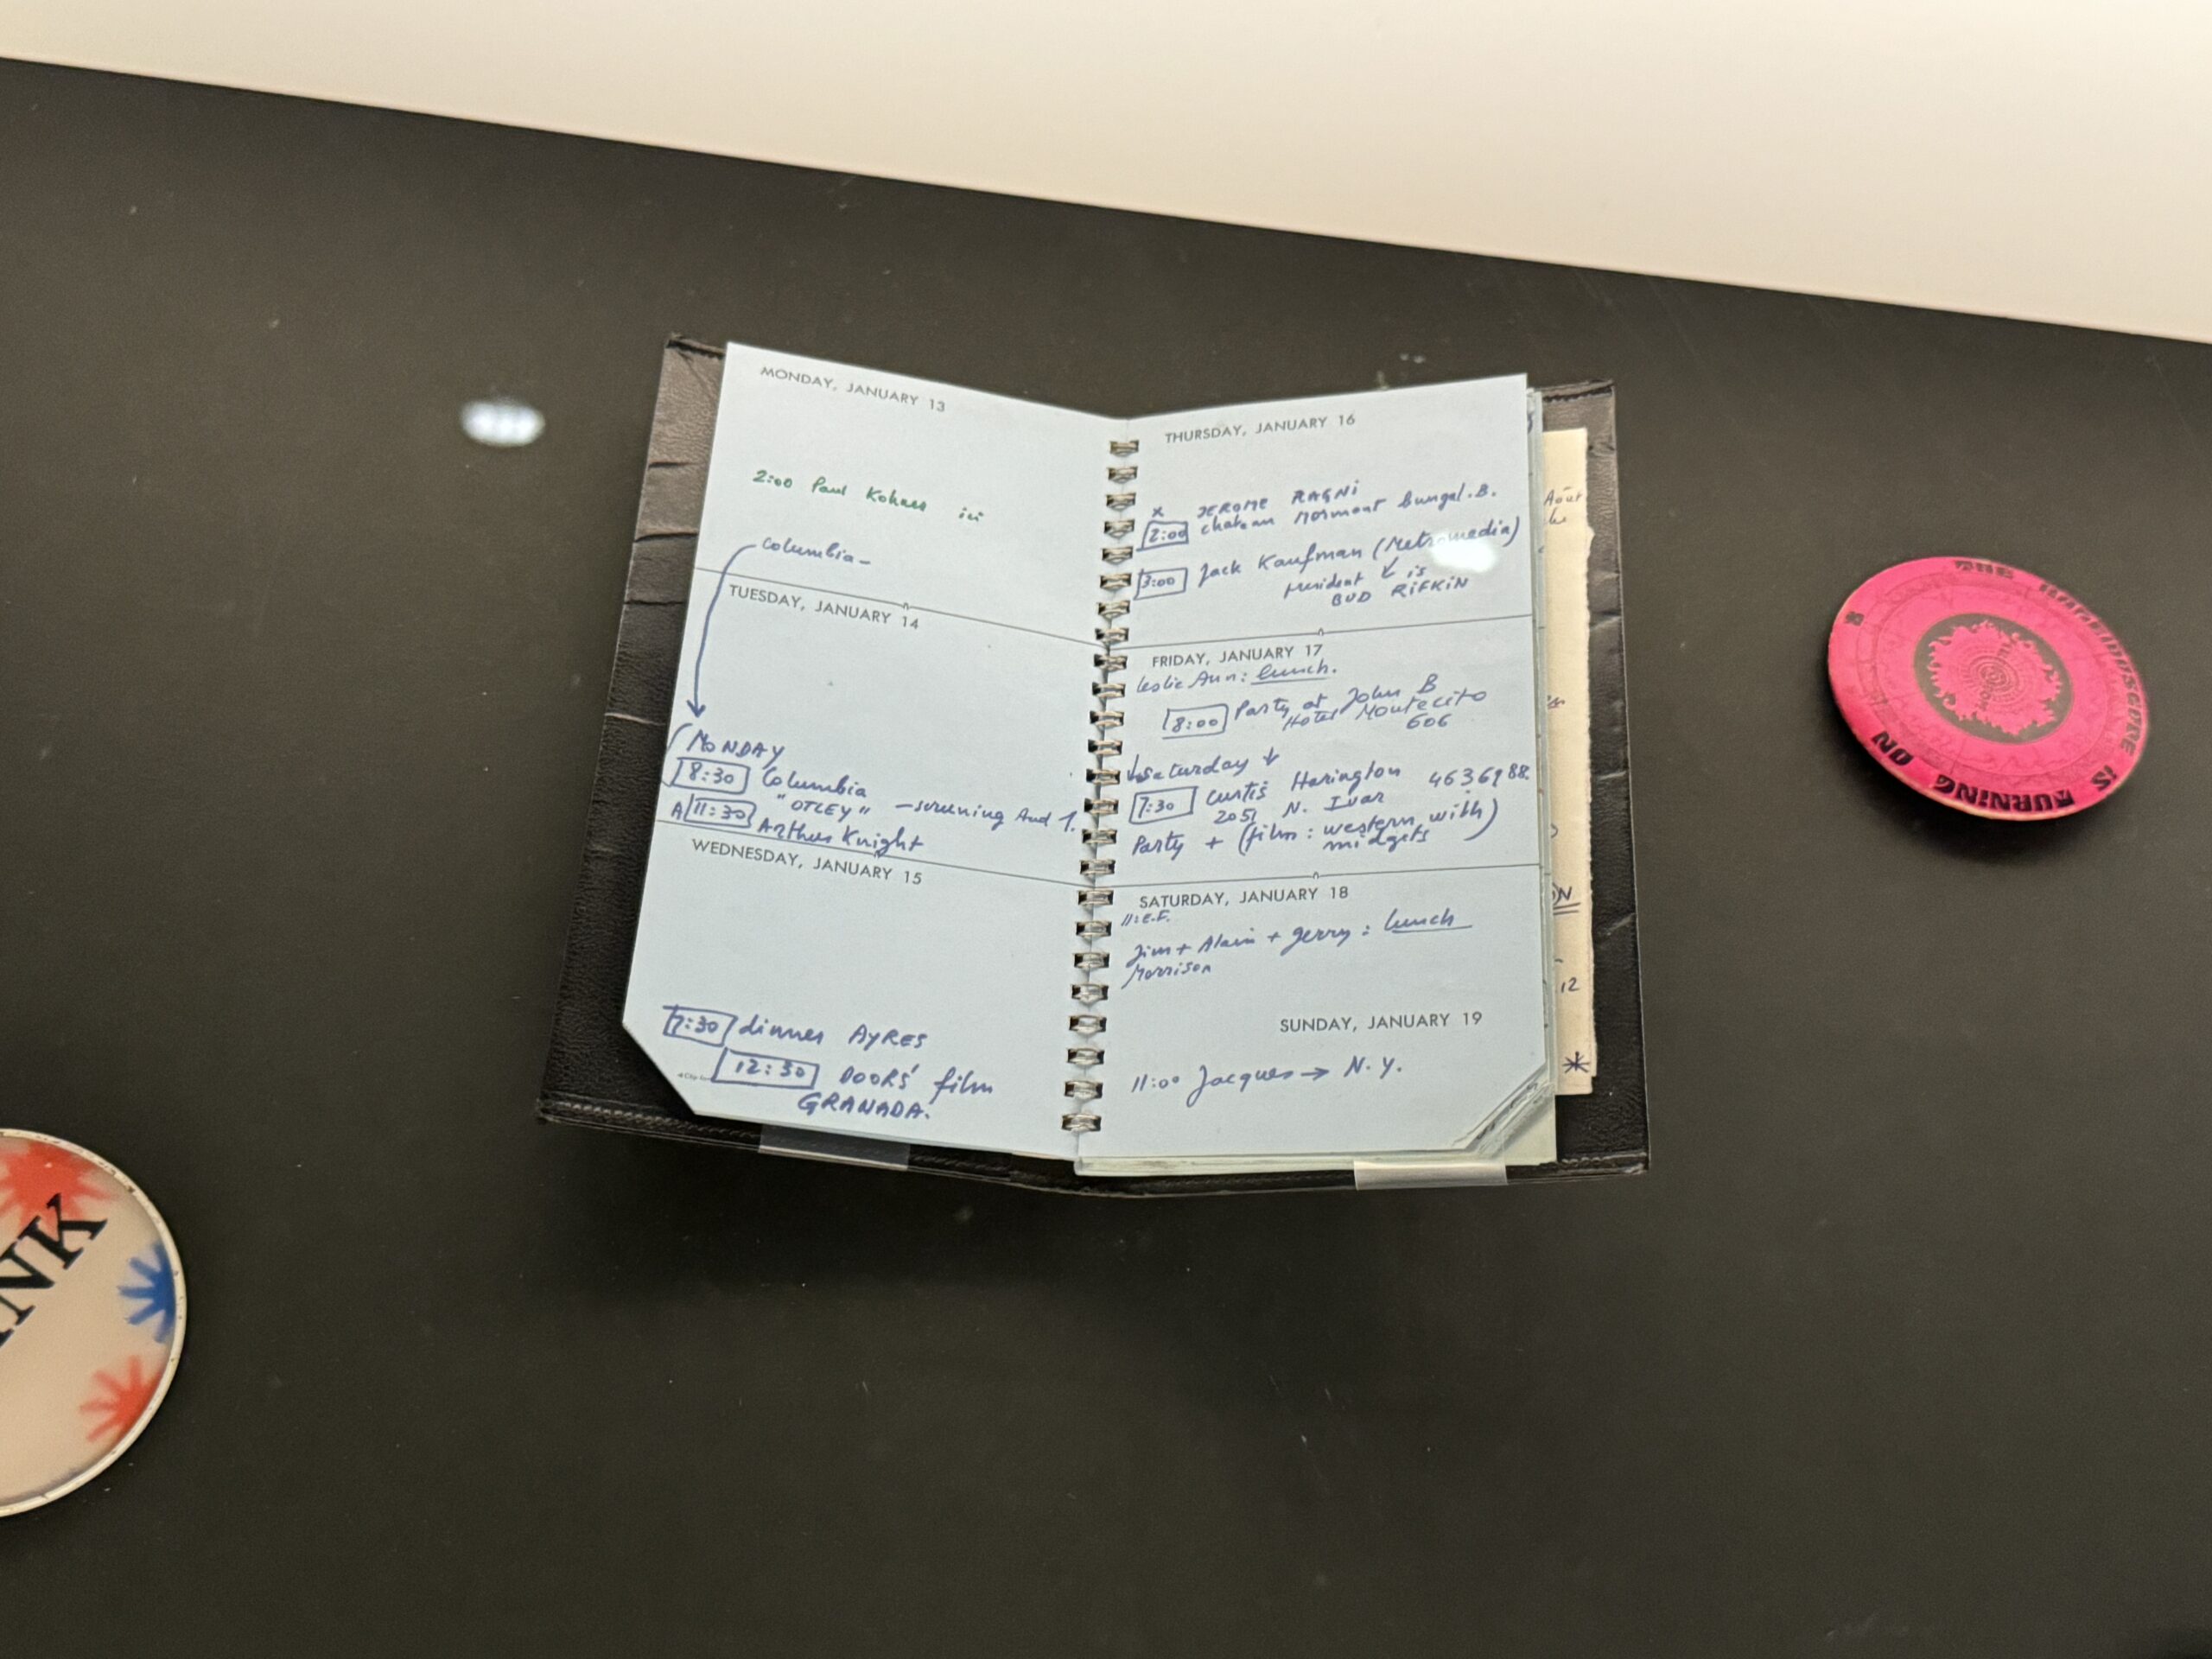 MONDAY, JANUARY 13
2:00 Paul Kohner ici
Columbia -
TUESDAY, JANUARY 14
MONDAY
8:30 Columbia
"OTLEY" - screening Aud 1.
A 11:30 Arthur Knight
WEDNESDAY, JANUARY 15
7:30 dinner AYRES
12:30 DOORS' film
GRANADA.
THURSDAY, JANUARY 16
x JEROME RAGNI
2:00 chateau Mormont Bungal. B.
3:00 Jack Kaufman (Metromedia)
president ↙ is
BUD RIFKIN
FRIDAY, JANUARY 17
Leslie Ann: lunch.
8:00 Party at John B
Hotel Montecito
606
↓ Saturday ↓
7:30 Curtis Harington 4636988
2051 N. Ivar
Party + (film: western with)
midgets
SATURDAY, JANUARY 18
11: E.F.
Jim + Alain + Jerry : lunch
Morrison
SUNDAY, JANUARY 19
11:00 Jacques → N.Y.
Août
ON
12
IS TURNING ON
INK